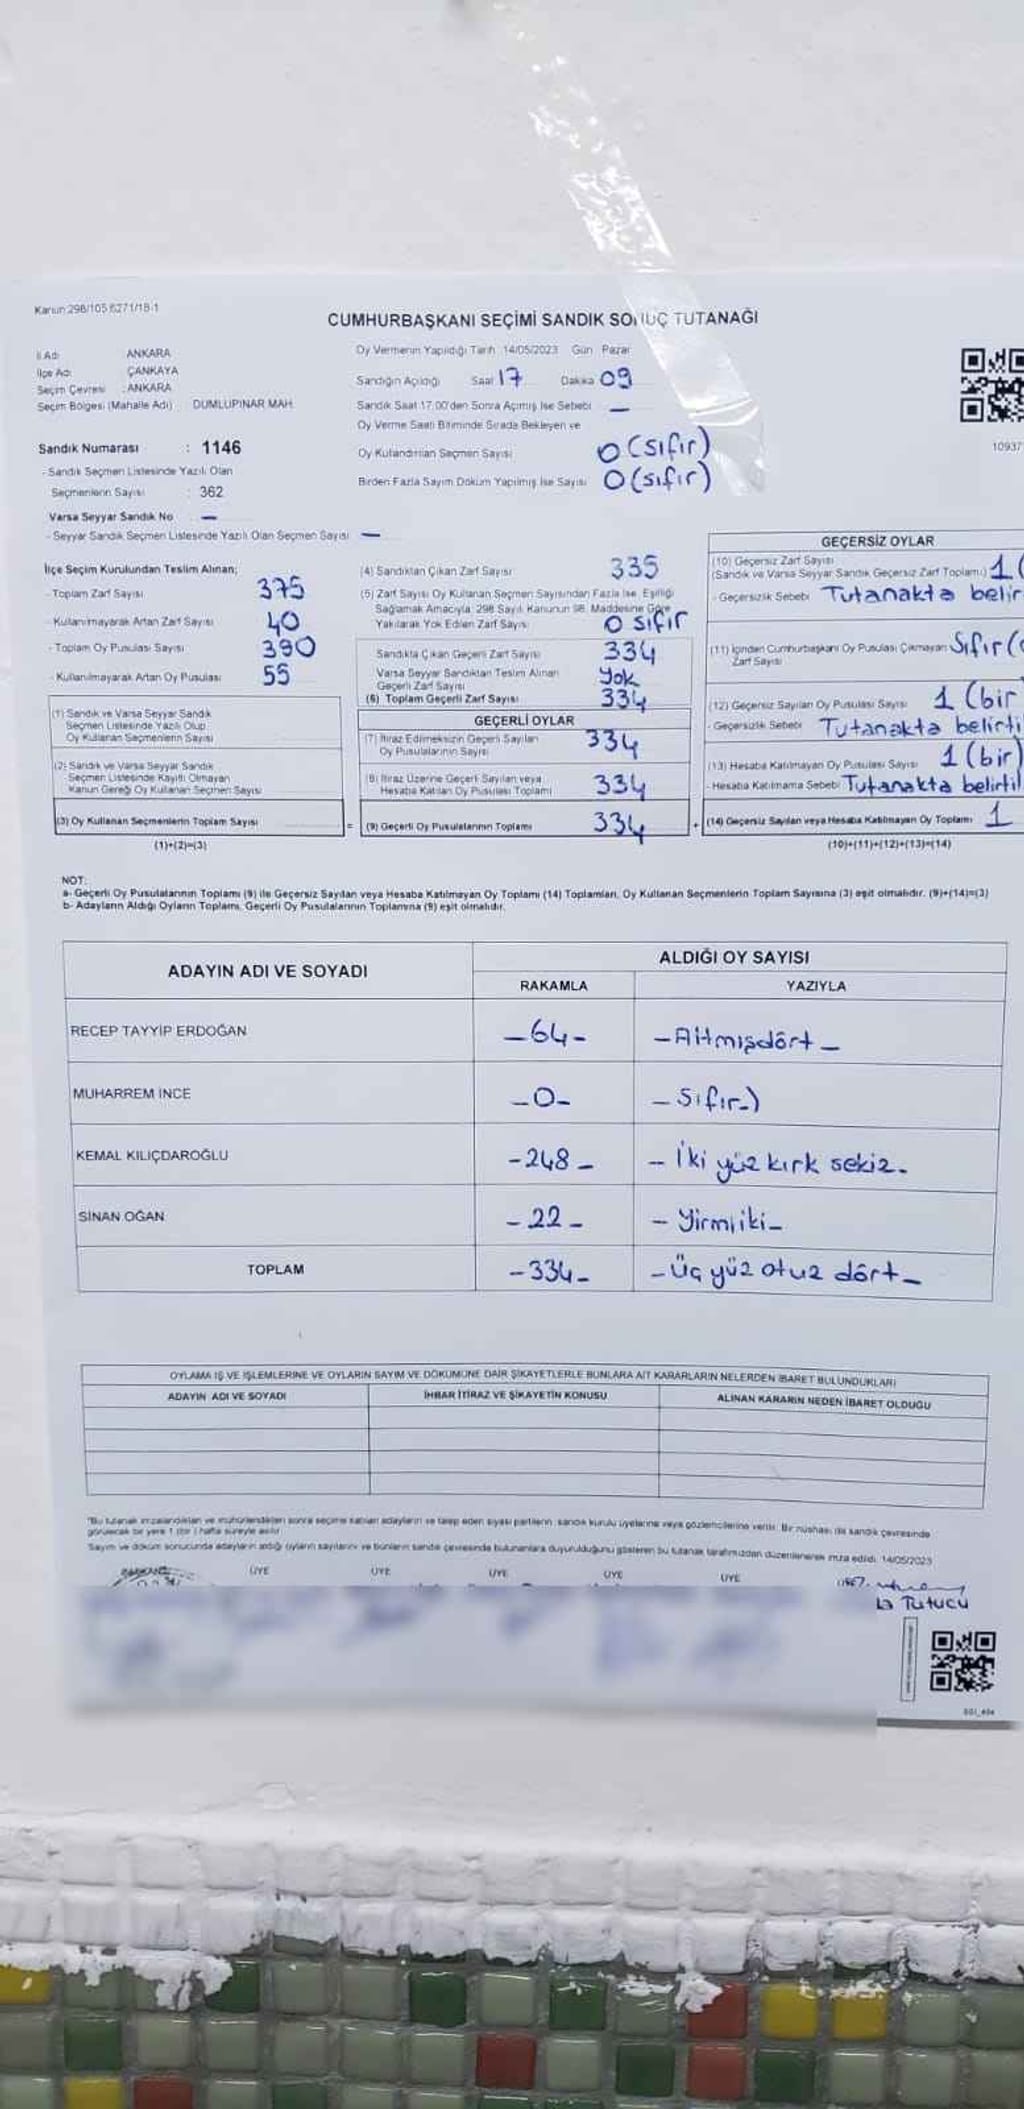 Kanun:298/105,6271/18-1
CUMHURBAŞKANI SEÇİMİ SANDIK SONUÇ TUTANAĞI
İl Adı ANKARA
İlçe Adı ÇANKAYA
Seçim Çevresi : ANKARA
Seçim Bölgesi (Mahalle Adı) DUMLUPINAR MAH.
Sandık Numarası : 1146
- Sandık Seçmen Listesinde Yazılı Olan
Seçmenlerin Sayısı : 362
Varsa Seyyar Sandık No —
- Seyyar Sandık Seçmen Listesinde Yazılı Olan Seçmen Sayısı —
Oy Vermenin Yapıldığı Tarih 14/05/2023 Gün Pazar
Sandığın Açıldığı Saat 17 Dakika 09
Sandık Saat 17.00'den Sonra Açılmış İse Sebebi —
Oy Verme Saati Bitiminde Sırada Bekleyen ve
Oy Kullandırılan Seçmen Sayısı 0 (sıfır)
Birden Fazla Sayım Döküm Yapılmış İse Sayısı 0 (sıfır)
10937
İlçe Seçim Kurulundan Teslim Alınan;
- Toplam Zarf Sayısı 375
- Kullanılmayarak Artan Zarf Sayısı 40
- Toplam Oy Pusulası Sayısı 390
- Kullanılmayarak Artan Oy Pusulası 55
(1) Sandık ve Varsa Seyyar Sandık
Seçmen Listesinde Yazılı Olup
Oy Kullanan Seçmenlerin Sayısı
(2) Sandık ve Varsa Seyyar Sandık
Seçmen Listesinde Kayıtlı Olmayan
Kanun Gereği Oy Kullanan Seçmen Sayısı
(3) Oy Kullanan Seçmenlerin Toplam Sayısı =
(1)+(2)=(3)
(4) Sandıktan Çıkan Zarf Sayısı 335
(5) Zarf Sayısı Oy Kullanan Seçmen Sayısından Fazla İse, Eşitliği
Sağlamak Amacıyla, 298 Sayılı Kanunun 98. Maddesine Göre
Yakılarak Yok Edilen Zarf Sayısı 0 sıfır
Sandıkta Çıkan Geçerli Zarf Sayısı 334
Varsa Seyyar Sandıktan Teslim Alınan
Geçerli Zarf Sayısı Yok
(6) Toplam Geçerli Zarf Sayısı 334
GEÇERLİ OYLAR
(7) İtiraz Edilmeksizin Geçerli Sayılan
Oy Pusulalarının Sayısı 334
(8) İtiraz Üzerine Geçerli Sayılan veya
Hesaba Katılan Oy Pusulası Toplamı 334
(9) Geçerli Oy Pusulalarının Toplamı 334 +
GEÇERSİZ OYLAR
(10) Geçersiz Zarf Sayısı
(Sandık ve Varsa Seyyar Sandık Geçersiz Zarf Toplamı) 1 (
- Geçersizlik Sebebi Tutanakta belir
(11) İçinden Cumhurbaşkanı Oy Pusulası Çıkmayan
Zarf Sayısı Sıfır (
(12) Geçersiz Sayılan Oy Pusulası Sayısı 1 (bir
- Geçersizlik Sebebi Tutanakta belirti
(13) Hesaba Katılmayan Oy Pusulası Sayısı 1 (bir)
- Hesaba Katılmama Sebebi Tutanakta belirtil
(14) Geçersiz Sayılan veya Hesaba Katılmayan Oy Toplamı 1
(10)+(11)+(12)+(13)=(14)
NOT:
a- Geçerli Oy Pusulalarının Toplamı (9) ile Geçersiz Sayılan veya Hesaba Katılmayan Oy Toplamı (14) Toplamları, Oy Kullanan Seçmenlerin Toplam Sayısına (3) eşit olmalıdır. (9)+(14)=(3)
b- Adayların Aldığı Oyların Toplamı, Geçerli Oy Pusulalarının Toplamına (9) eşit olmalıdır.
ADAYIN ADI VE SOYADI ALDIĞI OY SAYISI
RAKAMLA YAZIYLA
RECEP TAYYİP ERDOĞAN -64- -Altmışdört-
MUHARREM İNCE -0- -Sıfır-)
KEMAL KILIÇDAROĞLU -248- -İki yüz kırk sekiz-
SİNAN OĞAN -22- -Yirmiiki-
TOPLAM -334- -Üç yüz otuz dört-
OYLAMA İŞ VE İŞLEMLERİNE VE OYLARIN SAYIM VE DÖKÜMÜNE DAİR ŞİKAYETLERLE BUNLARA AİT KARARLARIN NELERDEN İBARET BULUNDUKLARI
ADAYIN ADI VE SOYADI İHBAR İTİRAZ VE ŞİKAYETİN KONUSU ALINAN KARARIN NEDEN İBARET OLDUĞU
"Bu tutanak imzalandıktan ve mühürlendikten sonra seçime katılan adayların ve talep eden siyasi partilerin, sandık kurulu üyelerine veya gözlemcilerine verilir. Bir nüshası da sandık çevresinde
görülecek bir yere 1 (bir) hafta süreyle asılır.
Sayım ve döküm sonucunda adayların aldığı oyların sayılarını ve bunların sandık çevresinde bulunanlara duyurulduğunu gösteren bu tutanak tarafımızdan düzenlenerek imza edildi. 14/05/2023
BAŞKAN ÜYE ÜYE ÜYE ÜYE ÜYE
Tutucu